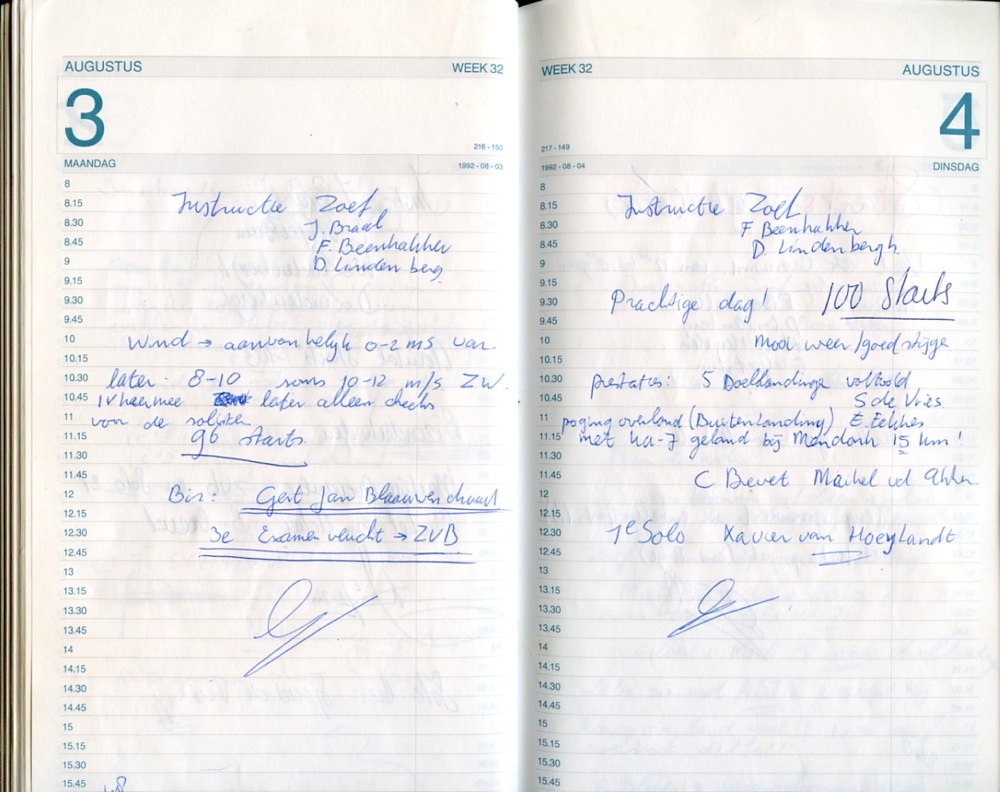 AUGUSTUS WEEK 32
3
216 - 150
MAANDAG 1992 - 08 - 03
8
8.15 Instructie Zoef
8.30 J. Braal
8.45 F. Beenhakker
9 D. Lindenberg.
9.15
9.30
9.45
10 Wind → aanvankelijk 0-2 ms var.
10.15
10.30 later. 8-10 soms 10-12 m/s ZW.
10.45 later alleen checks
11 voor de solisten
11.15 96 starts
11.30
11.45
12 Biz: Gert Jan
12.15
12.30 3e Examen vlucht → ZVB
12.45
13
13.15
13.30
13.45
14
14.15
14.30
14.45
15
15.15
15.30
15.45
WEEK 32 AUGUSTUS
4
217 - 149
1992 - 08 - 04 DINSDAG
8
8.15 Instructie Zoef
8.30 F Beenhakker
8.45 D. Lindenbergh.
9
9.15
9.30 Prachtige dag! 100 Starts
9.45
10 Mooi weer/goed stijge
10.15
10.30 prestaties: 5 Doellandinge voltooid
10.45 S de Vries
11 poging overland (Buitenlanding) E. Eckhes
11.15 met Ka-7 geland bij Mendonk 15 km!
11.30
11.45 C Bevet Maikel vd
12
12.15
12.30 1e Solo Xavier van Hoeylandt
12.45
13
13.15
13.30
13.45
14
14.15
14.30
14.45
15
15.15
15.30
15.45